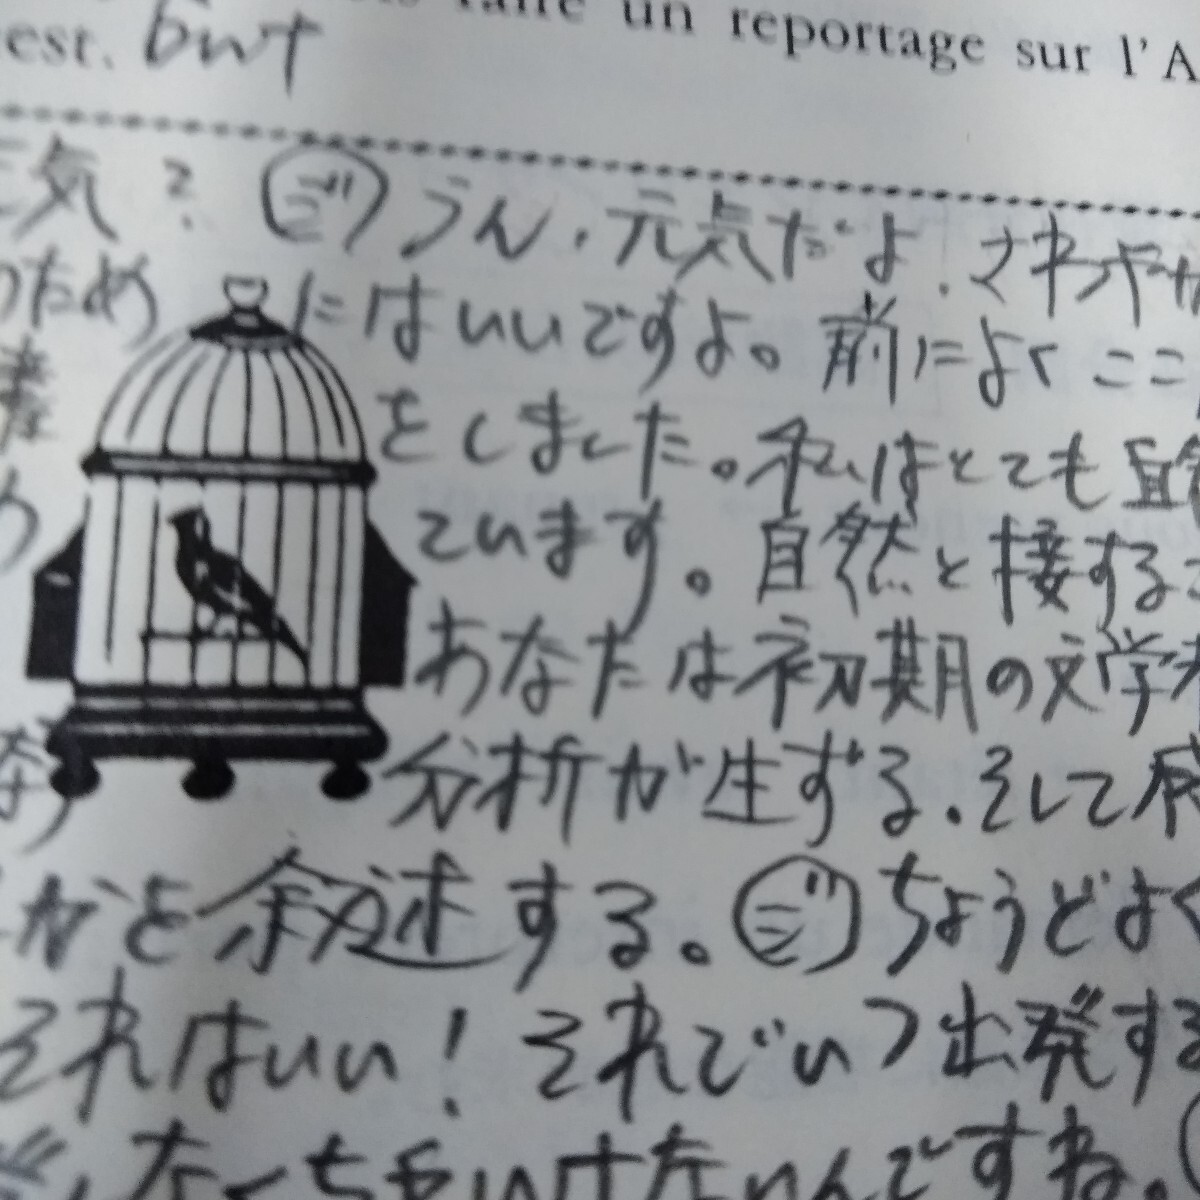 faire un reportage sur l'A
est. but
気? ジ うん、元気だよ. さわや
ため にはいいですよ。前によくここ
をしました。私はとても
ています。自然と接する
あなたは初期の文学
分析が生ずる. そして
かを叙述する。ジ ちょうどよく
それはいい! それでいつ出発する
たくちゃいけないんですね。